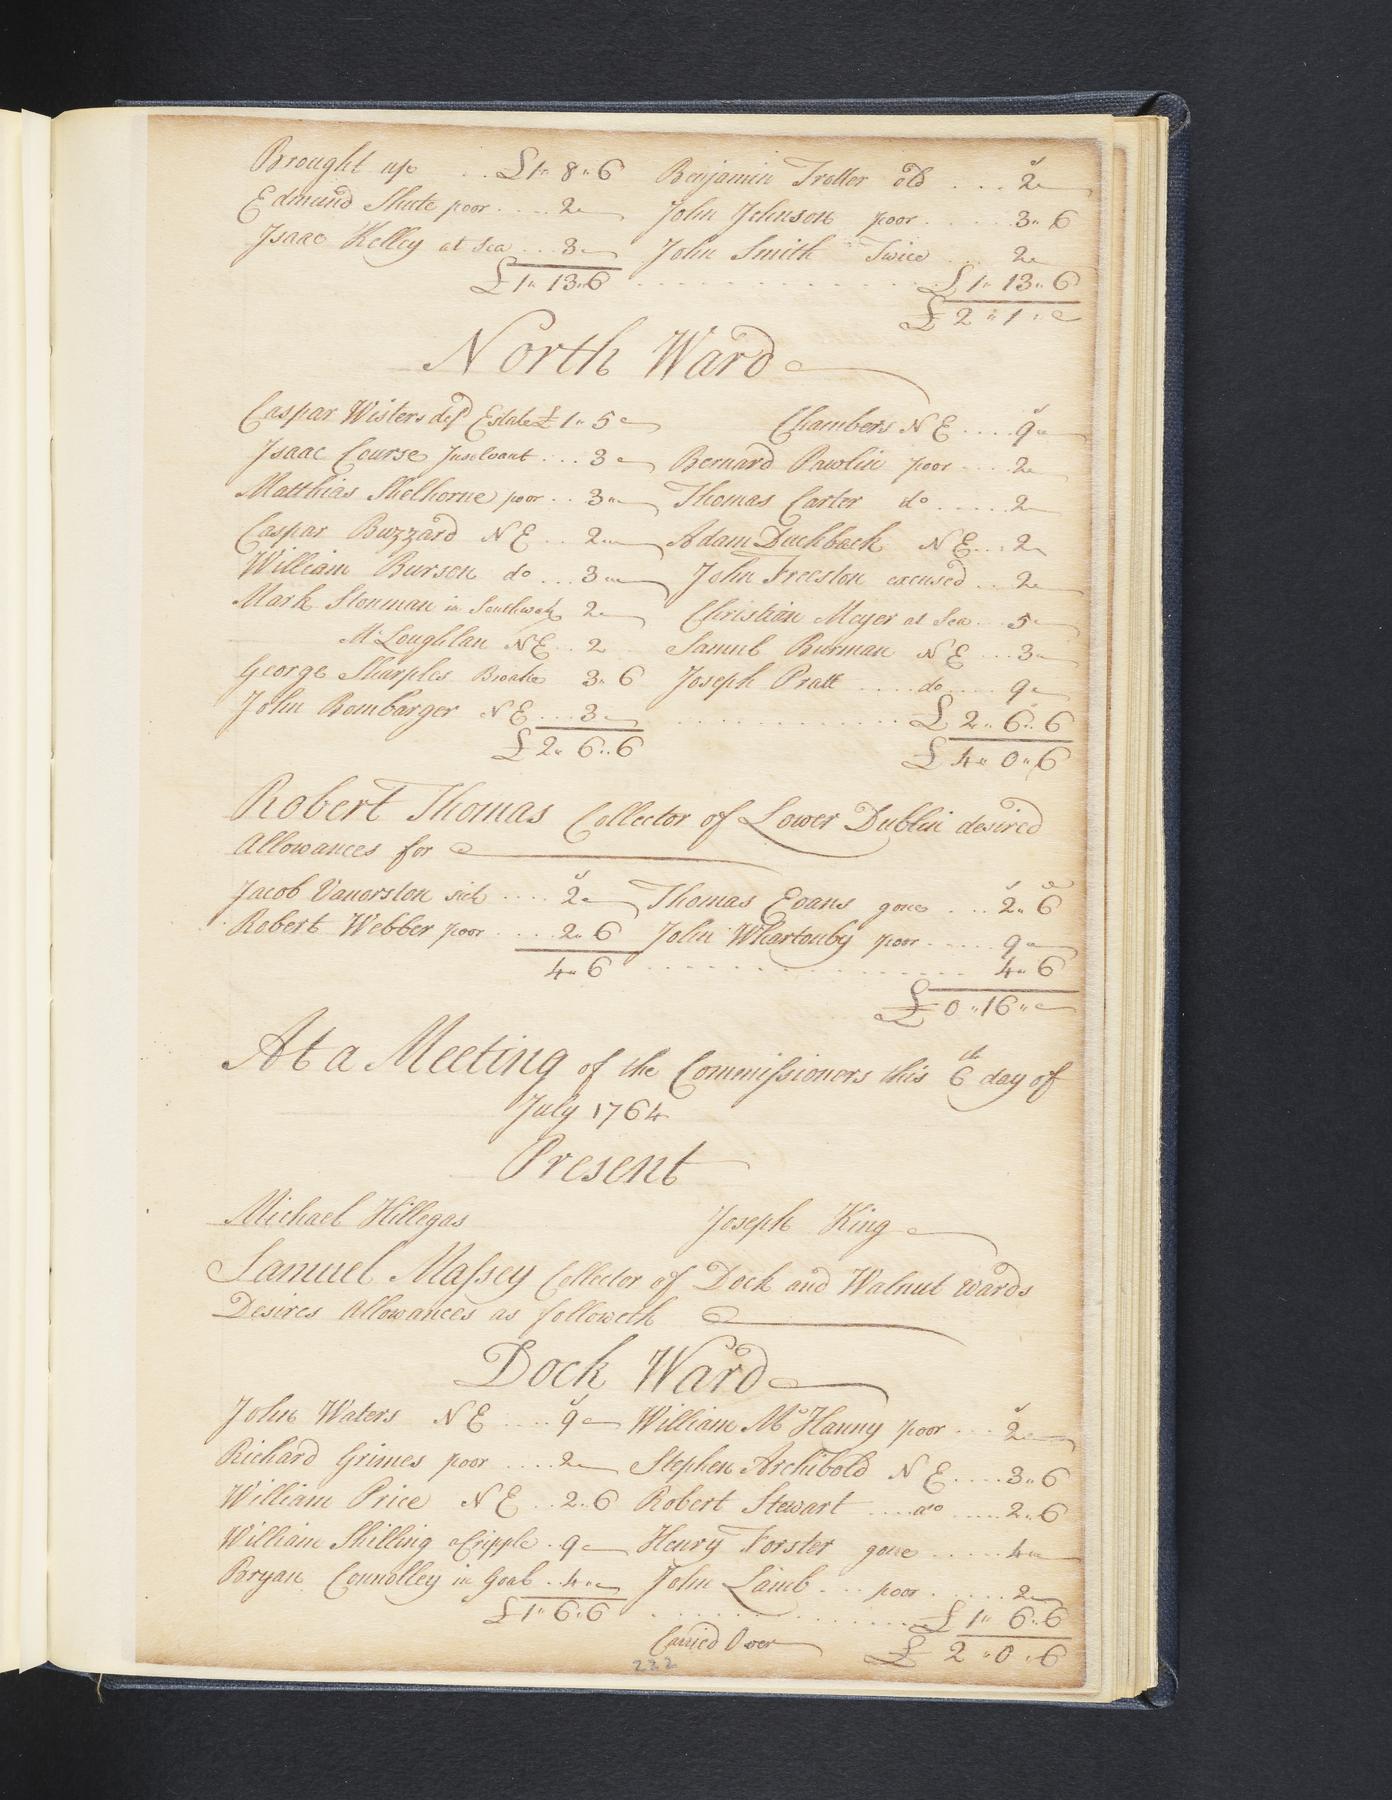 Brought up . . £1" 8" 6 Benjamin Trotter old . . . 2"
Edmund Shute poor . . . . 2" John Johnson poor . . . . . 3" 6
Isaac Kelley at Sea . . . 3" John Smith Twice . . . 2"
£1" 13" 6 . . . . . . . . . . . . £1" 13" 6
£2 " 1 "
North Ward
Caspar Wisters des'd Estate £1" 5" Chambers N E . . . . 9"
Isaac Course Insolvant . . . 3" Bernard Pawlin poor . . . 2"
Matthias Shelhorne poor . . 3" Thomas Carter do . . . . . 2"
Caspar Buzzard N E . . 2" Adam Duchback N E . . . 2
William Burson do . . . 3" John Freeston excused . . 2"
Mark Stonman in Southwark 2" Christian Meyer at Sea . . 5"
McLoughlan N E . . 2 Samul Burman N E . . . 3"
George Sharples Broake 3" 6 Joseph Pratt . . . . do . . . . 9"
John Bombarger N E . . . 3" . . . . . . . . . . . . £2" 6" 6
£2" 6" 6 £4" 0" 6
Robert Thomas Collector of Lower Dublin desired
Allowances for
Jacob Vanorston sick . . . . 2s" Thomas Evans gone . . . 2s" 6d
Robert Webber poor . . . . 2" 6 John Whartonby poor . . . . . 9"
4" 6 . . . . . . . . . . . . . . . . 4" 6
£0 " 16 "
At a Meeting of the Commissioners this 6th day of
July 1764
Present
Michael Hillegas Joseph King
Samuel Massey Collector of Dock and Walnut Wards
Desires Allowances as followeth
Dock Ward
John Waters N E . . . . 9s" William McHanny poor . . . 2s"
Richard Grimes poor . . . . 2" Stephen Archibold N E . . . . 3" 6
William Price N E . . 2" 6 Robert Stewart . . . . do . . . . . 2" 6
William Shilling a Cripple . 9" Henry Forster gone . . . . . 4"
Bryan Connolley in Goal . . 4" John Lamb . . . poor . . . . . 2"
£1" 6" 6 . . . . . . . . . . . . . . . £1" 6" 6
Carried Over £2 " 0 " 6
222